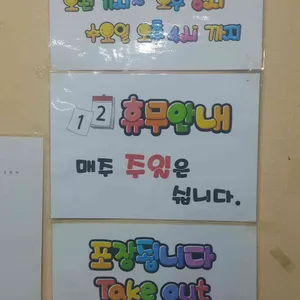 수요일 오후 4시 까지
1 2 휴무안내
매주 주일은
쉽니다.
포장됩니다
Take out